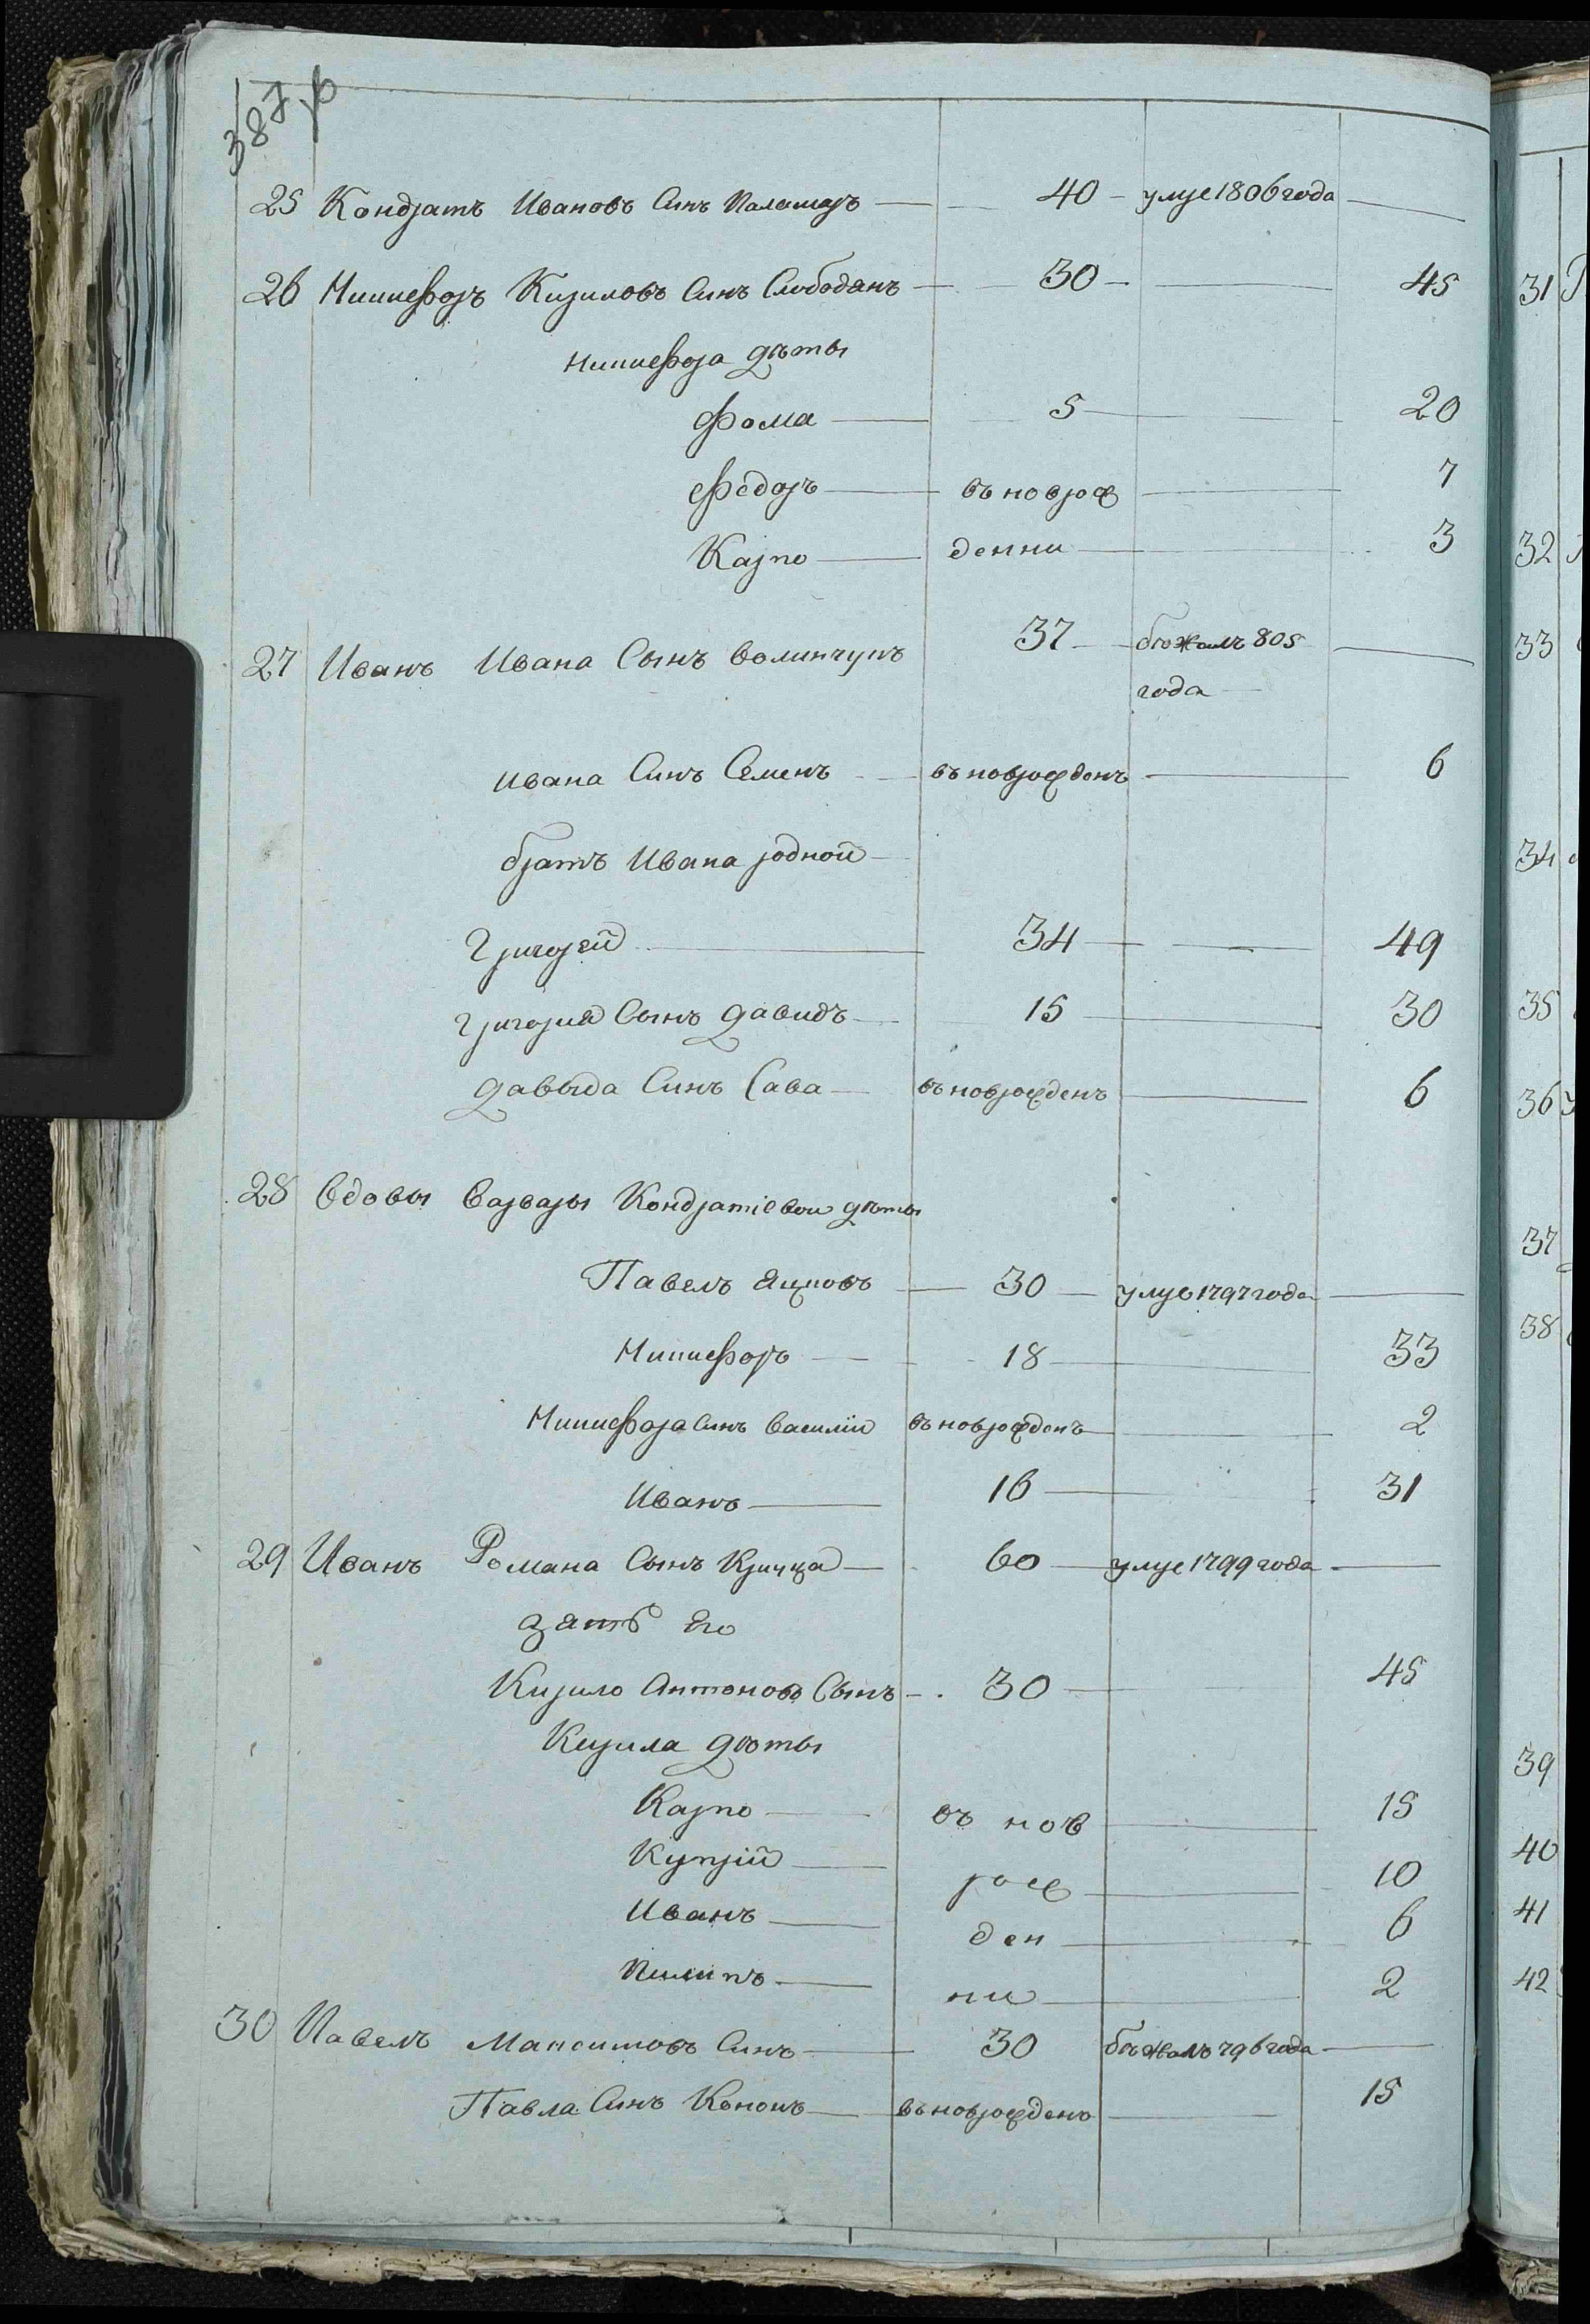 387 об
25 Кондратъ Ивановъ Синъ Паламаръ — 40 — умре 1806 года —
26 Никифоръ Кириловъ Синъ Слободянъ — 30 — 45
Никифора дѣты
Фома — 5 — 20
Федоръ — въноврож — 7
Карпо — денни — 3
27 Иванъ Ивана Сынъ Волинчукъ 37 — бѣжалъ 805 —
года —
Ивана Синъ Семенъ — въноврожденъ — 6
братъ Ивана родной —
Григорей — 34 — 49
Григория Сынъ Давидъ — 15 — 30
Давыда Синъ Сава — въноврожденъ — 6
28 Вдовы Варвары Кондратіевои дѣты
Павелъ Яцковъ — 30 — умре 1797 года —
Никифоръ — 18 — 33
Никифора Синъ Василій въноврожденъ — 2
Иванъ — 16 — 31
29 Иванъ Романа Сынъ — 60 — умре 1799 года —
зять Его
Кирило Антоновъ Сынъ — 30 — 45
Кирила дѣты
Карпо — въ нов — 15
Купрій — рож — 10
Иванъ — ден — 6
Пилипъ — ни — 2
30 Павелъ Максимовъ Синъ — 30 бѣжалъ 796 года —
Павла Синъ Кононъ — въноврожденъ — 15
31
32
33
34
35
36
37
38
39
40
41
42